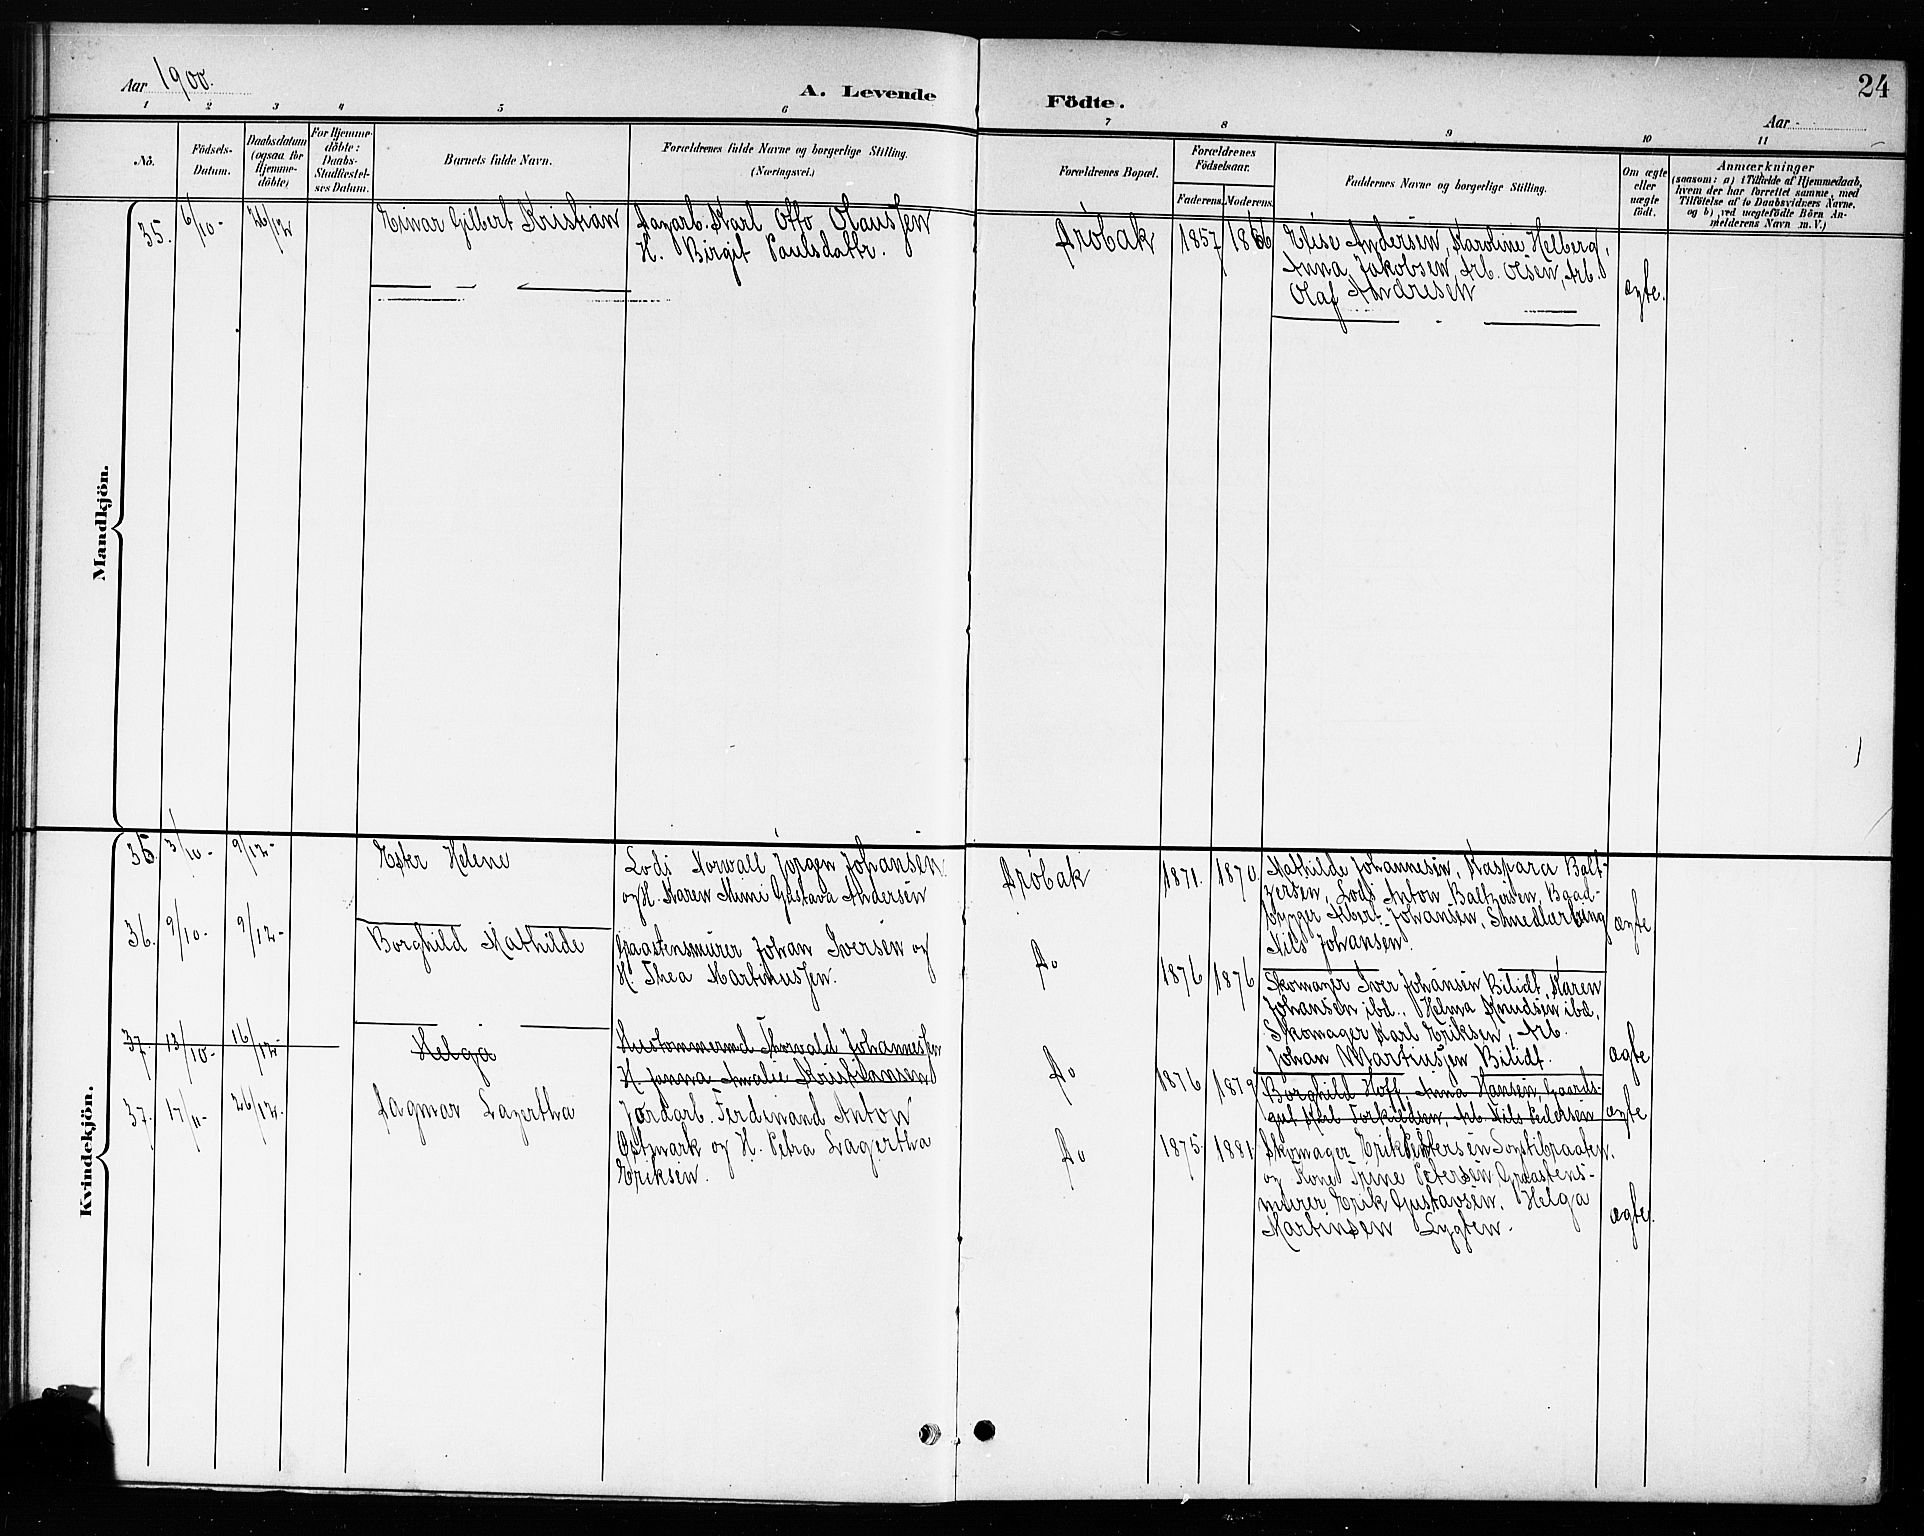 Aar 1900.
A. Levende
Födte.
24
Aar
1 2 3 4 5 6 7 8 9 10 11
No.
Födsels-
Datum.
Daabsdatum
(ogsaa for
Hjemme-
döbte)
For Hjemme-
döbte:
Daabs-
Stadfæstel-
ses Datum.
Barnets fulde Navn.
Forældrenes fulde Navne og borgerlige Stilling.
(Næringsvei.)
Forældrenes Bopæl.
Forældrenes
Födselsaar.
Faderens.
Moderens.
Faddernes Navne og borgerlige Stilling.
Om ægte
eller
uægte
födt.
Anmærkninger
(saasom: a) i Tilfælde af Hjemmedaab,
hvem der har forrettet samme, med
Tilföielse af to Daabsvidners Navne.
og b) ved uægtefödte Börn An-
melderens Navn m. V.)
Mandkjön.
35. 6/10- 26/12
Einar Gilbert Kristian
Dagarb. Karl Otto Olaussen
H. Birgit Paulsdattr.
Dröbak
1857 1866
Elise Andersen, Karoline Helberg,
Anna Jakobsen, Arb. Olsen, Arb.
Olaf Andresen
ægte.
Kvindekjön.
35. 3/10- 9/12-
Ester Helene
Lods Norwall Jørgen Johansen
og H. Karen Mimi Gustava Andersen
Dröbak
1871. 1870.
Mathilde Johannesen, Kaspara Balt-
zersen, Lods Anton Baltzersen, Baad-
bygger Albert Johansen, Smedlærling
Nils Johansen.
ægte
36. 9/10- 9/12-
Borghild Mathilde
Graastensmurer Johan Iversen og
H. Thea Martinussen.
Do
1876 1876
Skomager Iver Johansen Bilidt, Karen
Johansen ibd., Helma Knudsen ibd,
Skomager Karl Eriksen, Arb.
Johan Martiussen Bilidt.
ægte
37. 13/10- 16/12-
Helga
Hustømmermd Thorvald Johannessen
H. Janna Amalie Kristiansen
Do
1876 1879
Borghild Hoff, Anna Hansen, Gaards-
gut Karl Torkildsen, Arb. Nils Pedersen
ægte
37. 17/11- 26/12.
Dagmar Lagertha
Jordarb. Ferdinand Anton
Østmark og H. Petra Lagertha
Eriksen.
Do
1875. 1881
Skomager Erik Pettersen Sorstibraaten.
og Kone Trine Petersen, Graastens-
murer Erik Gustavsen, Helga
Martinsen Lygten.
ægte.